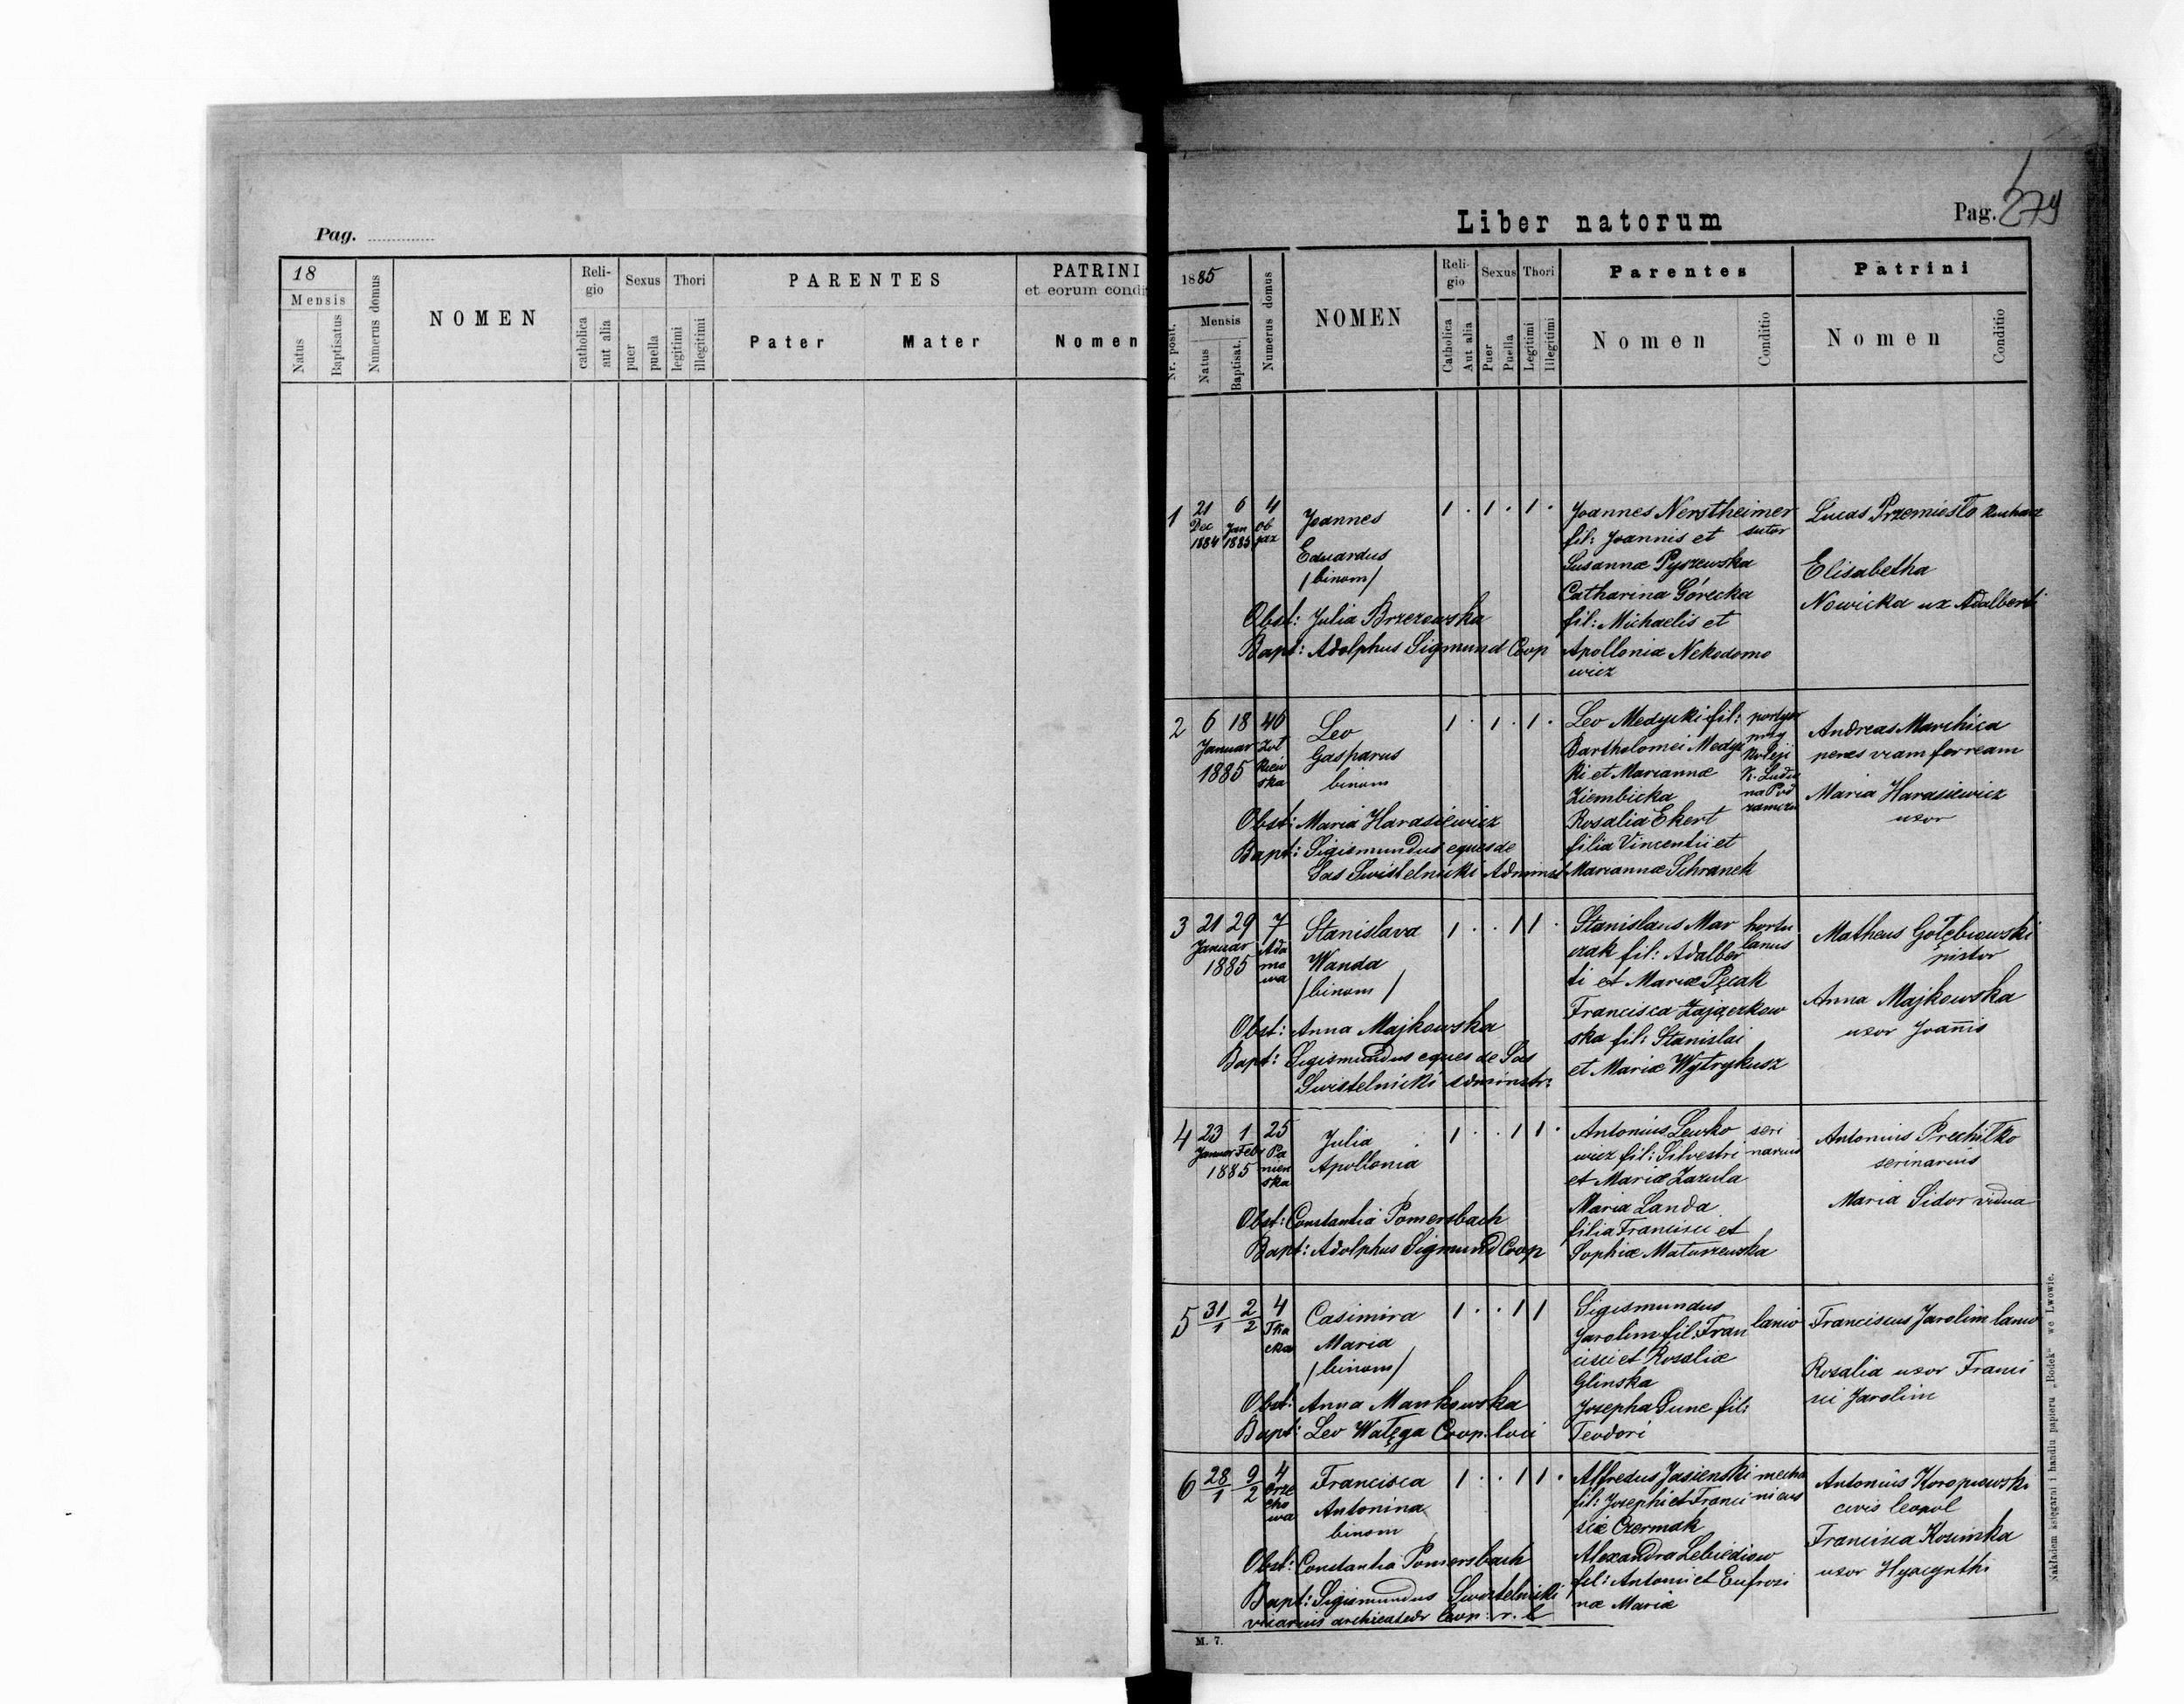 Pag.
18
Mensis
Natus
Baptisatus
Numerus domus
NOMEN
Reli-
gio
catholica
aut alia
Sexus
puer
puella
Thori
legitimi
illegitimi
PARENTES
Pater
Mater
PATRINI
et eorum condi
Nomen
Liber natorum
Pag. 279
1885
Nr. posit.
Mensis
Natus
Baptisat.
Numerus domus
NOMEN
Reli-
gio
Catholica
Aut alia
Sexus
Puer
Puella
Thori
Legitimi
Illegitimi
Parentes
Nomen
Conditio
Patrini
Nomen
Conditio
1
21
Dec
1884
6
Jan
1885
4
ob
jaz
Joannes
Eduardus
/binom/
1 . 1 . 1 .
Obst: Julia Brzezowska
Bapt: Adolphus Sigmund Coop
Joannes Nerstheimer
fil: Joannis et
Susannæ Pyszewska
Catharina Górecka
fil: Michaelis et
Apolloniæ Nekodomo
wicz
sutor
Lucas Przemiesło kucharz
Elisabetha
Nowicka ux Adalberti
2
6 18
Januar
1885
46
Żoł
kiew
ska
Leo
Gasparus
binom
1 . 1 . 1 .
Obst: Maria Harasiewicz
Bapt: Sigismundus eques de
Sas Swistelnicki Administ
Leo Medycki fil:
Bartholomei Medyc
ki et Mariannæ
Ziembicka
Rosalia Ekert
filia Vincentii et
Mariannæ Schranek
przy
koleji
K. Ludw
na Pod
zamczu
Andreas Marchica
penes viam ferream
Maria Harasiewicz
uxor
3
21 29
Januar
1885
7
Ada
mo
wa
Stanislava
Wanda
/binom/
1 . . 1 1 .
Obst: Anna Majkowska
Bapt: Sigismundus eques de Sas
Swistelnicki Administr.
Stanislaus Mar
czak fil: Adalber
ti et Mariæ Pęcak
Francisca Zajączkow
ska fil: Stanislai
et Mariæ Wytrykusz
hortu
lanus
Matheus Gołębiowski
pistor
Anna Majkowska
uxor Joannis
4
23 1
Januar Febr
1885
25
Pa
nień
ska
Julia
Apollonia
1 . . 1 1 .
Obst: Constantia Pomersbach
Bapt: Adolphus Sigmund Coop
Antonius Lewko
wicz fil: Silvestri
et Mariæ Zazula
Maria Landa
filia Francisci et
Sophiæ Matuszewska
seri
narius
Antonius Prechitko
serinarius
Maria Sidor vidua
5
31/1
2/2
4
Tka
cka
Casimira
Maria
/binom/
1 . . 1 1
Obst: Anna Mankowska
Bapt: Leo Wałęga Coop. loci
Sigismundus
Jarolim fil. Fran
cisci et Rosaliæ
Glinska
Josepha Dune fil:
Teodori
lanio
Franciscus Jarolim lanio
Rosalia uxor Franci
sci Jarolim
6
28/1
9/2
4
Orze
cho
wa
Francisca
Antonina
binom
1 . . 1 1 .
Obst: Constantia Pomersbach
Bapt: Sigismundus Swistelnicki
vicarius archicatedr Leop: r. l
Alfredus Jasienski
fil: Josephi et Franci
scæ Czermak
Alexandra Lebiediow
fil: Antoni et Eufrosi
næ Mariæ
mecha
nicus
Antonius Koropiowski
civis leopol
Francisca Kosinska
uxor Hyacynthi
M. 7.
Nakładem księgarni i handlu papieru „Bodek" we Lwowie.